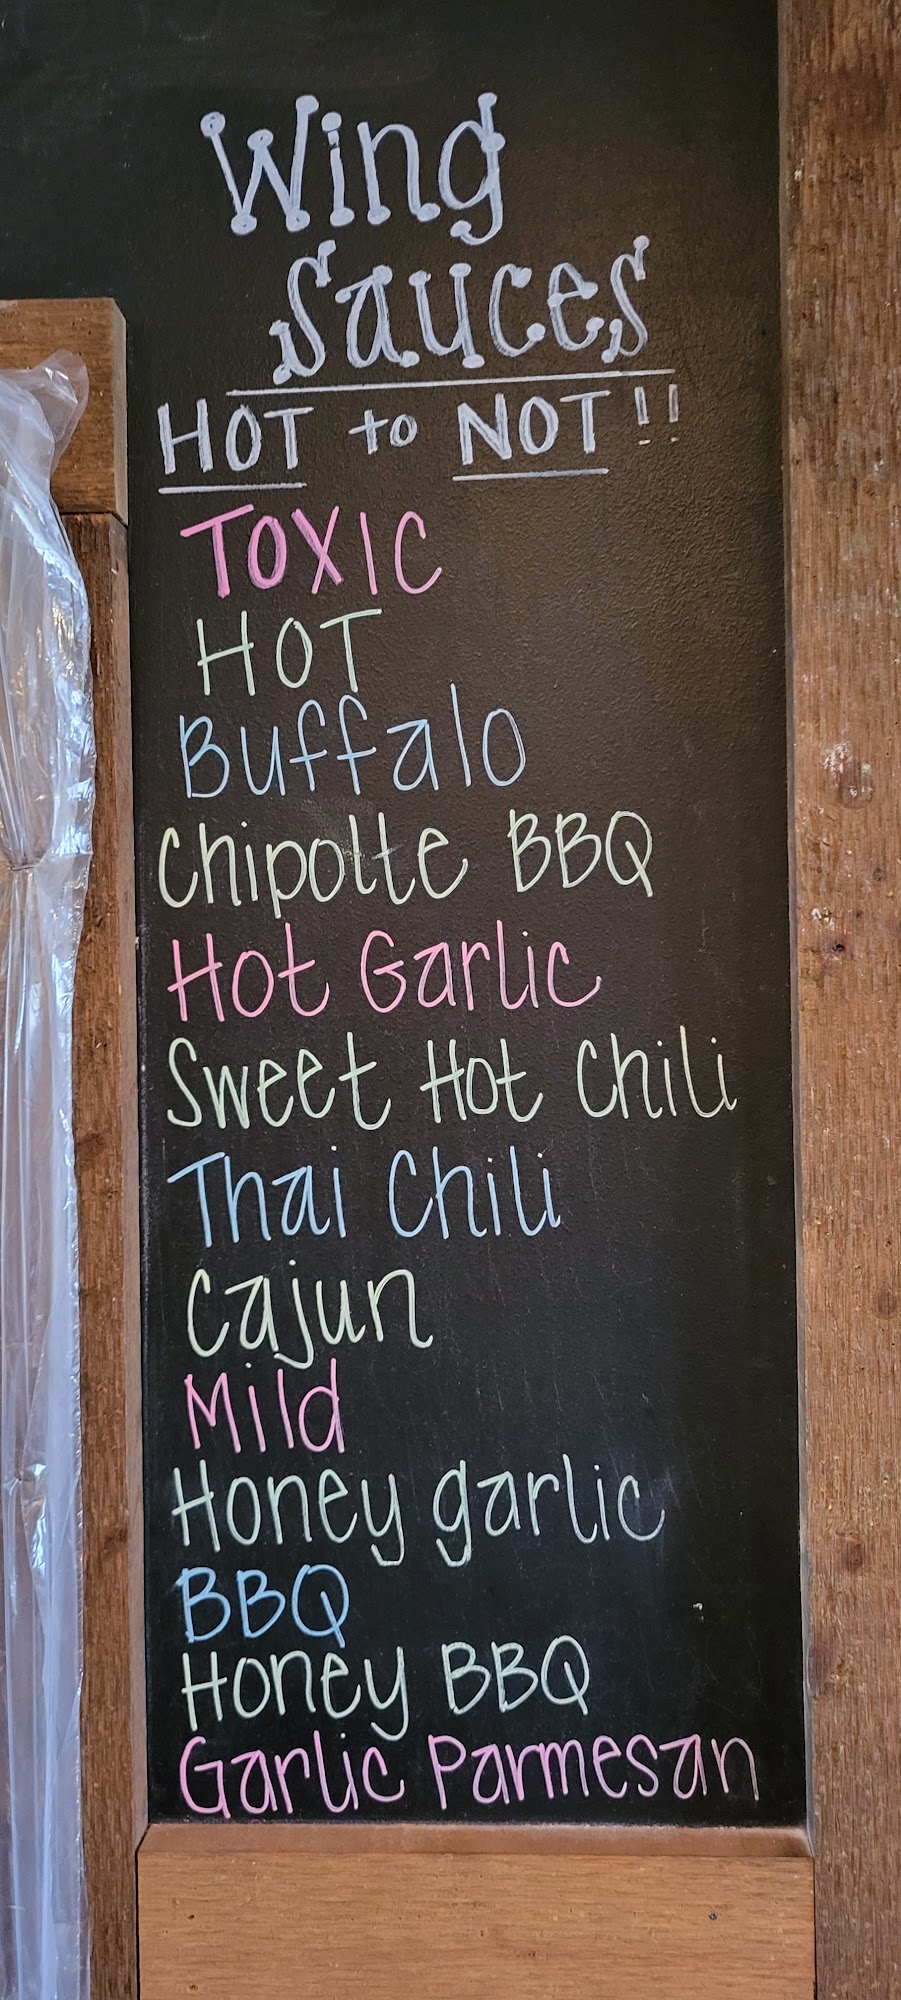 Wing
Sauces
HOT to NOT!!
TOXIC
HOT
Buffalo
Chipotle BBQ
Hot Garlic
Sweet Hot Chili
Thai Chili
Cajun
Mild
Honey garlic
BBQ
Honey BBQ
Garlic Parmesan